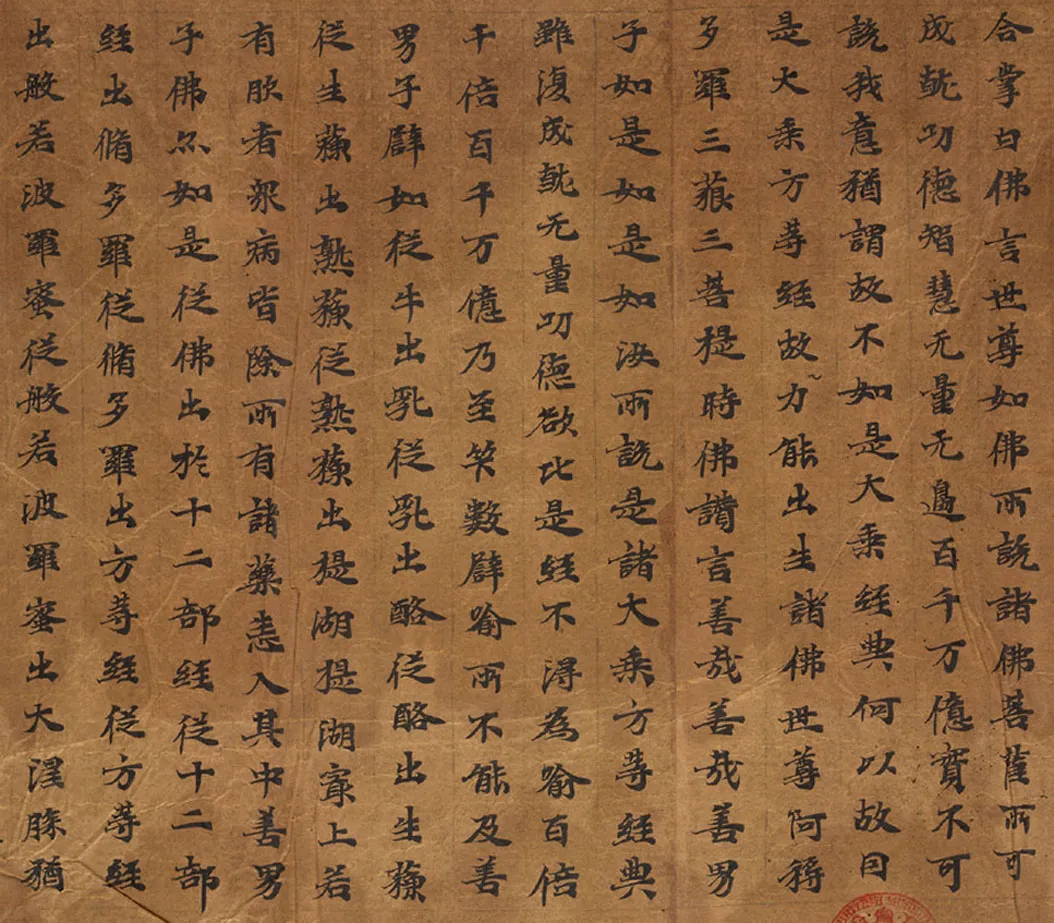 合掌白佛言世尊如佛所說諸佛菩薩所可
成就功德智慧无量无邊百千万億實不可
說我意猶謂故不如是大乘經典何以故因
是大乘方等經故力能出生諸佛世尊阿耨
多羅三藐三菩提時佛讚言善哉善哉善男
子如是如是如汝所說是諸大乘方等經典
雖復成就无量功德欲比是經不得為喻百倍
千倍百千万億乃至筭數辟喻所不能及善
男子辟如從牛出乳從乳出酪從酪出生蘓
從生蘓出熟蘓從熟蘓出提湖提湖冣上若
有服者衆病皆除所有諸藥悉入其中善男
子佛亦如是從佛出於十二部經從十二部
經出脩多羅從脩多羅出方等經從方等經
出般若波羅蜜從般若波羅蜜出大涅槃猶